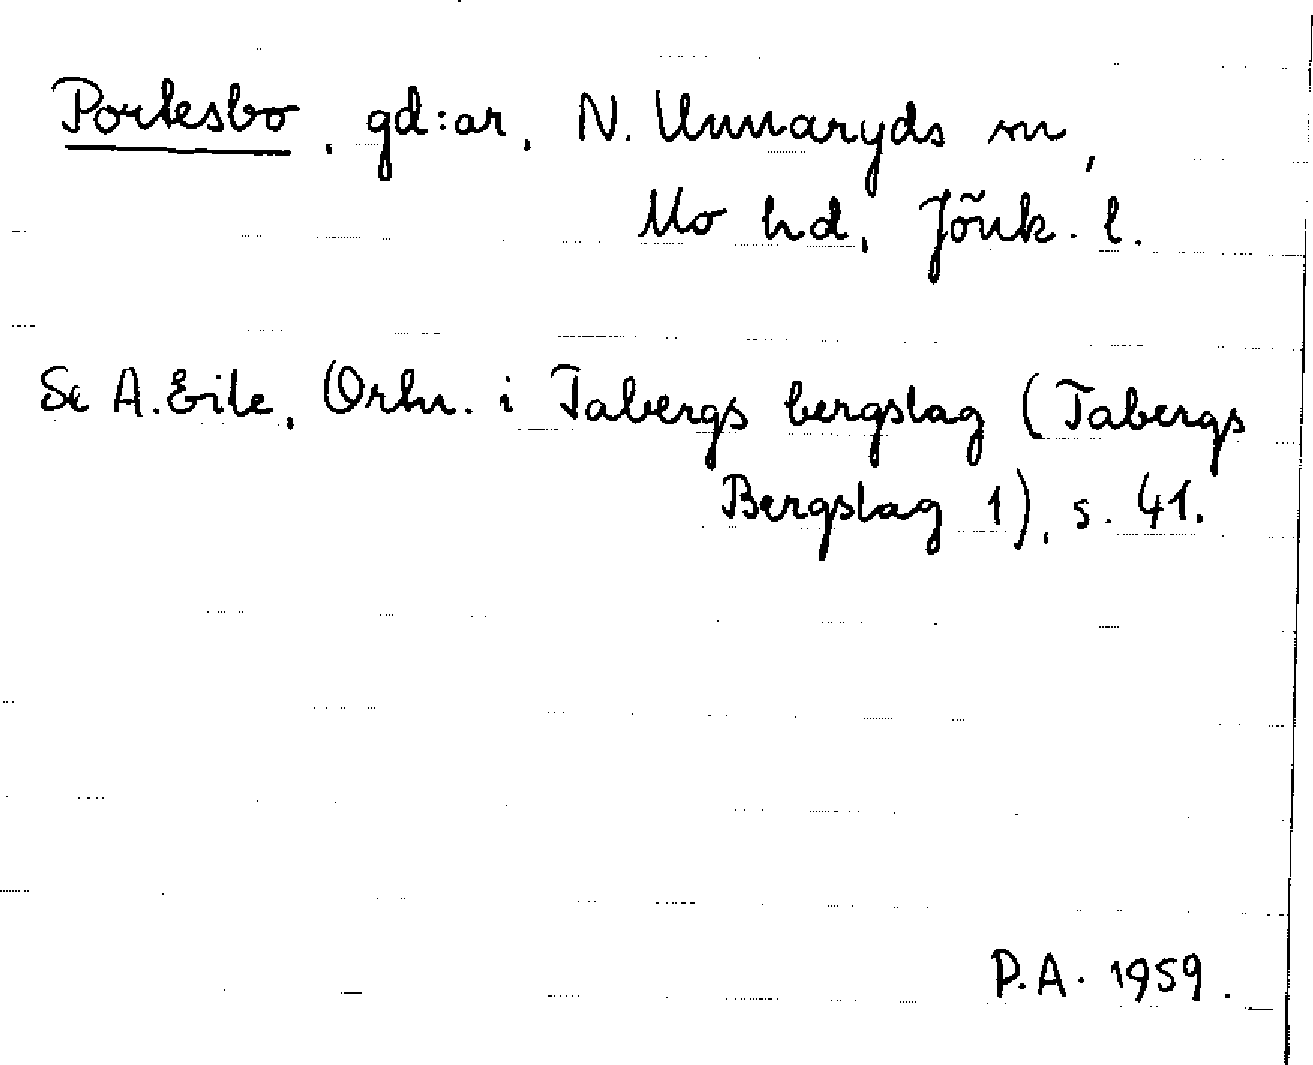 Portesbo, gd:ar, N. Unnaryds sn,
Mo hd, Jönk. l.
Se A. Eile, Ortn. i Tabergs bergslag (Tabergs
Bergslag 1), s. 41.
P.A. 1959.